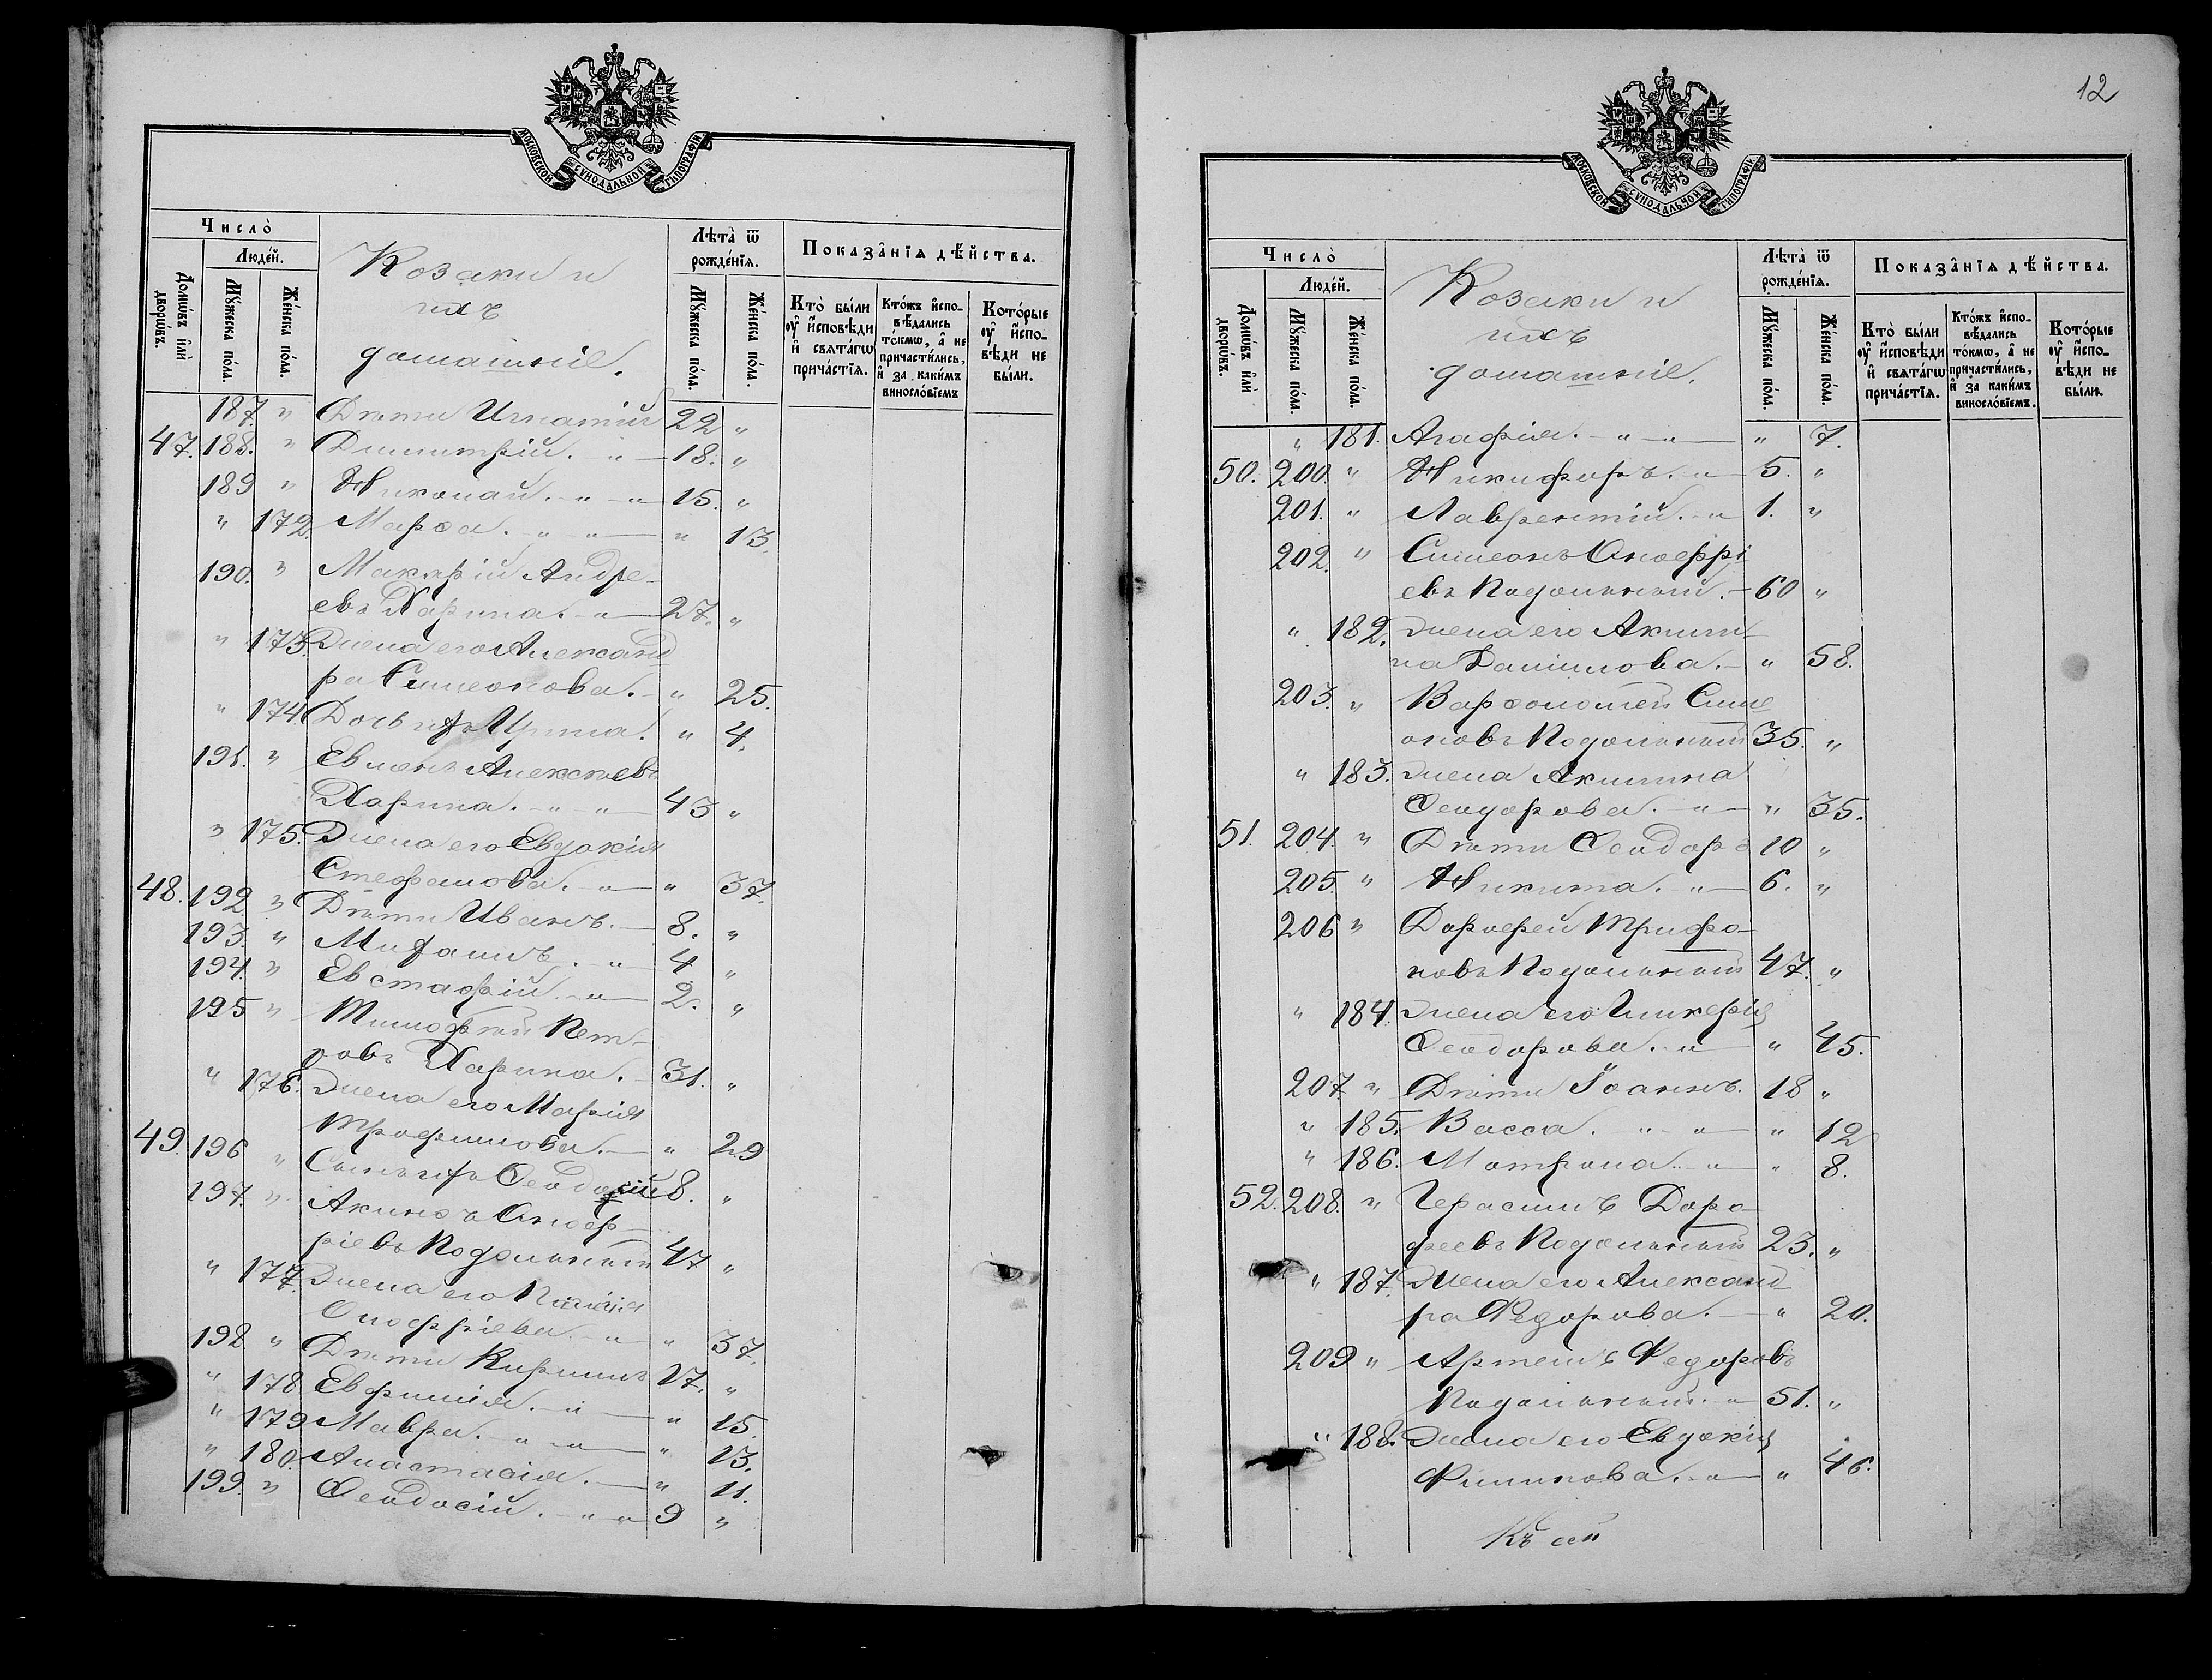 12
МОСКОВСКОЙ СУНОДАЛЬНОЙ ТИПОГРАФІИ
Число̀
Домѡ́въ и҆лѝ дворѡ́въ.
Люде́й.
Мꙋ́жеска по́ла.
Же́нска по́ла.
Козаки и
ихъ
домашніе.
Лѣта̀ ѿ рожде́нїѧ.
Мꙋ́жеска по́ла.
Же́нска по́ла.
Показа̂нїѧ дѣ́йства.
Кто̀ бы́ли ᲂу҆ и҆́сповѣди и҆ свѧта́гѡ прича́стїѧ.
Кто́жъ и҆спо- вѣ́дались то́кмѡ, а҆ не причасти́лись, и҆ за каки́мъ винословїемъ
Кото́рые ᲂу҆ и҆́спо- вѣди не бы́ли.
187. " Дѣти Игнатій 22 "
47. 188. " Димитрій. " 18. "
189 " Николай. " " 15. "
" 172. Марѳа. " " " 13.
190. " Макарій Андре-
евъ Харина. " 27. "
" 173. Жена его Александ
ра Симеонова. " 25.
" 174. Дочь ихъ Ирина. " 4.
191. " Алексѣевъ
Харина. " " 43 "
" 175. Жена его Евдокія
Стефанова. " " 37.
48. 192 " Дѣти Иванъ. 8. "
193. " Михаилъ. " 4 "
194. " Евстафій. " 2. "
195 " Тимофѣй Пет-
ровъ Харина. 31. "
" 176. Жена его Марія
Трофимова. " 29
49. 196 " Сынъ ихъ Ѳеодосій 8. "
197. " Оноф-
ріевъ Подольный 47 "
" 177. Жена его
Онофріева. " " 37.
198 " Дѣти Кириллъ 17. "
" 178 Евфимія. " " 15.
" 179 Мавра. " " " 13.
" 180. Анастасія. " 11.
199. " Ѳеодосій. " " 9 "
МОСКОВСКОЙ СУНОДАЛЬНОЙ ТИПОГРАФІИ
Число̀
Домѡ́въ и҆лѝ дворѡ́въ.
Люде́й.
Мꙋ́жеска по́ла.
Же́нска по́ла.
Козаки и
ихъ
домашніе.
Лѣта̀ ѿ рожде́нїѧ.
Мꙋ́жеска по́ла.
Же́нска по́ла.
Показа̂нїѧ дѣ́йства.
Кто̀ бы́ли ᲂу҆ и҆́сповѣди и҆ свѧта́гѡ прича́стїѧ.
Кто́жъ и҆спо- вѣ́дались то́кмѡ, а҆ не причасти́лись, и҆ за каки́мъ винословїемъ.
Кото́рые ᲂу҆ и҆́спо- вѣди не бы́ли.
" 181. Агафія. " " " 7.
50. 200. " Никифоръ. " 5. "
201. " Лаврентій. " 1. "
202. " Симеонъ Оноффрі
евъ Подольный. 60 "
" 182. Жена его Акили-
на Даніилова. " 58.
203. " Варѳоломей Симе
оновъ Подольный 35. "
" 183. Жена Акилина
Ѳеодорова. " " 35.
51. 204. " Дѣти Ѳеодоръ 10 "
205. " Никита. " 6. "
206 " Дорофей Трифо-
новъ Подольный 47. "
" 184. Жена его Гликерія
Ѳеодорова. " " 45.
207 " Дѣти Іоаннъ. 18 "
" 185. Васса. " " " 12
" 186. Матрона. " " 8.
52. 208. " Герасимъ Доро-
феевъ Подольный 23. "
" 187. Жена его Александ
ра Федорова. " 20.
209 " Артемъ Федоровъ
Подольный. " 51. "
" 188. Жена его Евдокія
Филипова. " " 46.
Къ сей